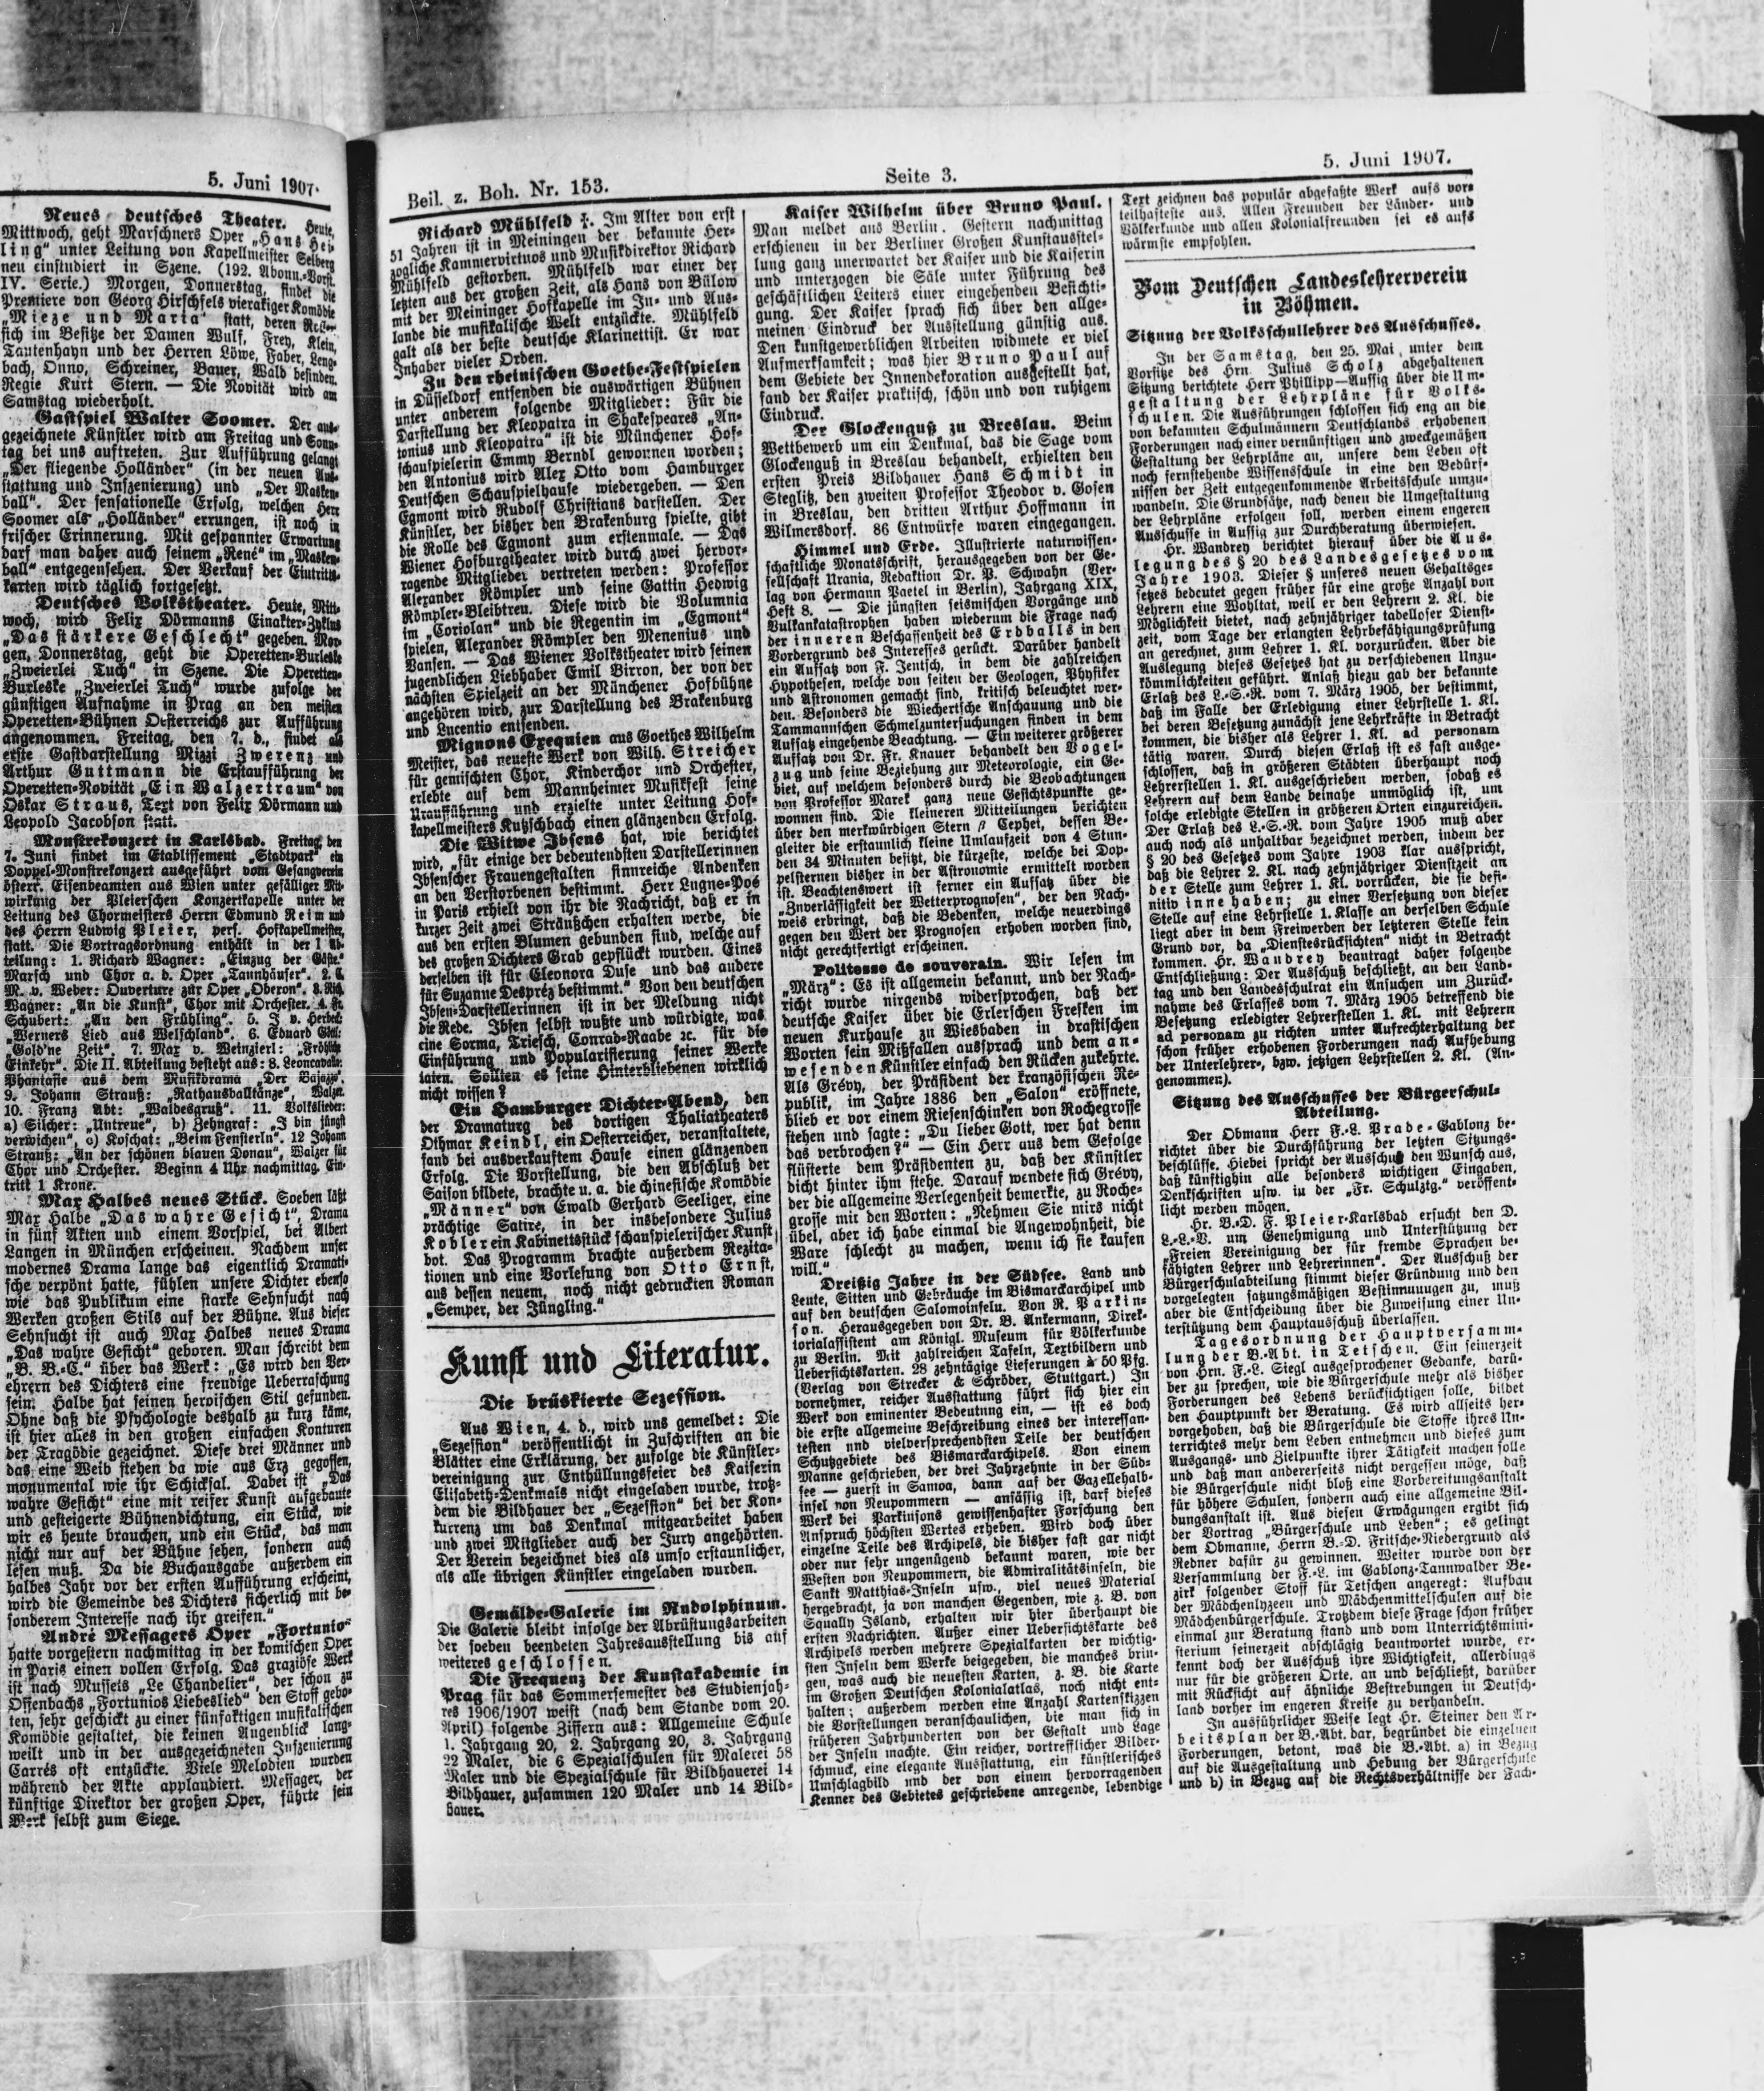 5. Juni 1907.
Neues deutsches Theater. Heute,
Mittwoch, geht Marschners Oper „Hans Hei-
ling" unter Leitung von Kapellmeister Selberg
neu einstudiert in Szene. (192. Abonn.-Vorst.
IV. Serie.) Morgen, Donnerstag, findet die
Premiere von Georg Hirschfels vieraktiger Komödie
„Mieze und Maria" statt, deren
sich im Besitze der Damen Wulf, Frey, Klein,
Tautenhayn und der Herren Löwe, Faber, Leng-
bach, Onno, Schreiner, Bauer, Wald befinden.
Regie Kurt Stern. — Die Novität wird am
Samstag wiederholt.
Gastspiel Walter Soomer. Der aus-
gezeichnete Künstler wird am Freitag und Sonn-
tag bei uns auftreten. Zur Aufführung gelangt
„Der fliegende Holländer" (in der neuen Aus-
stattung und Inszenierung) und „Der Masken-
ball". Der sensationelle Erfolg, welchen Herr
Soomer als „Holländer" errungen, ist noch in
frischer Erinnerung. Mit gespannter Erwartung
darf man daher auch seinem „René" im „Masken-
ball" entgegensehen. Der Verkauf der Eintritts-
karten wird täglich fortgesetzt.
Deutsches Volkstheater. Heute, Mitt-
woch, wird Felix Dörmanns Einakter-Zyklus
„Das stärkere Geschlecht" gegeben. Mor-
gen, Donnerstag, geht die Operetten-Burleske
„Zweierlei Tuch" in Szene. Die Operetten-
Burleske „Zweierlei Tuch" wurde zufolge der
günstigen Aufnahme in Prag an den meisten
Operetten-Bühnen Oesterreichs zur Aufführung
angenommen. Freitag, den 7. d., findet als
erste Gastdarstellung Mizzi Zwerenz und
Arthur Guttmann die Erstaufführung der
Operetten-Novität „Ein Walzertraum" von
Oskar Straus, Text von Felix Dörmann und
Leopold Jacobson statt.
Monstrekonzert in Karlsbad. Freitag, den
7. Juni findet im Etablissement „Stadtpark" ein
Doppel-Monstrekonzert ausgeführt vom Gesangverein
österr. Eisenbeamten aus Wien unter gefälliger Mit-
wirkung der Pleierschen Konzertkapelle unter der
Leitung des Chormeisters Herrn Edmund Reim und
des Herrn Ludwig Pleier, pers. Hofkapellmeister,
statt. Die Vortragsordnung enthält in der I Ab-
teilung: 1. Richard Wagner: „Einzug der Gäste."
Marsch und Chor a. d. Oper „Tannhäuser". 2. C.
M. v. Weber: Ouverture zur Oper „Oberon". 3. Rich.
Wagner: „An die Kunst", Chor mit Orchester. 4. Fr.
Schubert: „An den Frühling". 5. J. v. Herbeck:
„Werners Lied aus Welschland". 6. Eduard
„Gold'ne Zeit". 7. Max v. Weinzierl: „Fröhliche
Einkehr". Die II. Abteilung besteht aus: 8. Leoncavallo:
Phantasie aus dem Musikdrama „Der Bajazzo".
9. Johann Strauß: „Rathausballtänze", Walzer.
10. Franz Abt: „Waldesgruß". 11. Volkslieder:
a) Silcher: „Untreue", b) Zehngraf: „I bin jüngst
verwichen", c) Koschat: „Beim Fensterln". 12 Johann
Strauß: „An der schönen blauen Donau", Walzer für
Chor und Orchester. Beginn 4 Uhr nachmittag. Ein-
tritt 1 Krone.
Max Halbes neues Stück. Soeben läßt
Max Halbe „Das wahre Gesicht", Drama
in fünf Akten und einem Vorspiel, bei Albert
Langen in München erscheinen. Nachdem unser
modernes Drama lange das eigentlich Dramati-
sche verpönt hatte, fühlen unsere Dichter ebenso
wie das Publikum eine starke Sehnsucht nach
Werken großen Stils auf der Bühne. Aus dieser
Sehnsucht ist auch Max Halbes neues Drama
„Das wahre Gesicht" geboren. Man schreibt dem
„B. B.-C." über das Werk: „Es wird den Ver-
ehrern des Dichters eine freudige Ueberraschung
sein: Halbe hat seinen heroischen Stil gefunden.
Ohne daß die Psychologie deshalb zu kurz käme,
ist hier alles in den großen einfachen Konturen
der Tragödie gezeichnet. Diese drei Männer und
das eine Weib stehen da wie aus Erz gegossen,
monumental wie ihr Schicksal. Dabei ist „Das
wahre Gesicht" eine mit reifer Kunst aufgebaute
und gesteigerte Bühnendichtung, ein Stück, wie
wir es heute brauchen, und ein Stück, das man
nicht nur auf der Bühne sehen, sondern auch
lesen muß. Da die Buchausgabe außerdem ein
halbes Jahr vor der ersten Aufführung erscheint,
wird die Gemeinde des Dichters sicherlich mit be-
sonderem Interesse nach ihr greifen."
André Messagers Oper „Fortunio"
hatte vorgestern nachmittag in der komischen Oper
in Paris einen vollen Erfolg. Das graziöse Werk
ist nach Mussets „Le Chandelier", der schon zu
Offenbachs „Fortunios Liebeslied" den Stoff gebo-
ten, sehr geschickt zu einer fünfaktigen musikalischen
Komödie gestaltet, die keinen Augenblick lang-
weilt und in der ausgezeichneten Inszenierung
Carrés oft entzückte. Viele Melodien wurden
während der Akte applaudiert. Messager, der
künftige Direktor der großen Oper, führte sein
Werk selbst zum Siege.
Beil. z. Boh. Nr. 153.
Seite 3.
5. Juni 1907.
Richard Mühlfeld †. Im Alter von erst
51 Jahren ist in Meiningen der bekannte Her-
zogliche Kammervirtuos und Musikdirektor Richard
Mühlfeld gestorben. Mühlfeld war einer der
letzten aus der großen Zeit, als Hans von Bülow
mit der Meininger Hofkapelle im In- und Aus-
lande die musikalische Welt entzückte. Mühlfeld
galt als der beste deutsche Klarinettist. Er war
Inhaber vieler Orden.
Zu den rheinischen Goethe-Festspielen
in Düsseldorf entsenden die auswärtigen Bühnen
unter anderem folgende Mitglieder: Für die
Darstellung der Kleopatra in Shakespeares „An-
tonius und Kleopatra" ist die Münchener Hof-
schauspielerin Emmy Berndl gewonnen worden;
den Antonius wird Alex Otto vom Hamburger
Deutschen Schauspielhause wiedergeben. — Den
Egmont wird Rudolf Christians darstellen. Der
Künstler, der bisher den Brakenburg spielte, gibt
die Rolle des Egmont zum erstenmale. — Das
Wiener Hofburgtheater wird durch zwei hervor-
ragende Mitglieder vertreten werden: Professor
Alexander Römpler und seine Gattin Hedwig
Römpler-Bleibtreu. Diese wird die Volumnia
im „Coriolan" und die Regentin im „Egmont"
spielen, Alexander Römpler den Menenius und
Vansen. — Das Wiener Volkstheater wird seinen
jugendlichen Liebhaber Emil Birron, der von der
nächsten Spielzeit an der Münchener Hofbühne
angehören wird, zur Darstellung des Brakenburg
und Lucentio entsenden.
Mignons Exequien aus Goethes Wilhelm
Meister, das neueste Werk von Wilh. Streicher
für gemischten Chor, Kinderchor und Orchester,
erlebte auf dem Mannheimer Musikfest seine
Uraufführung und erzielte unter Leitung Hof-
kapellmeisters Kutzschbach einen glänzenden Erfolg.
Die Witwe Ibsens hat, wie berichtet
wird, „für einige der bedeutendsten Darstellerinnen
Ibsenscher Frauengestalten sinnreiche Andenken
an den Verstorbenen bestimmt. Herr Lugne-Poé
in Paris erhielt von ihr die Nachricht, daß er in
kurzer Zeit zwei Sträußchen erhalten werde, die
aus den ersten Blumen gebunden sind, welche auf
des großen Dichters Grab gepflückt wurden. Eines
derselben ist für Eleonora Duse und das andere
für Suzanne Despréz bestimmt." Von den deutschen
Ibsen-Darstellerinnen ist in der Meldung nicht
die Rede. Ibsen selbst wußte und würdigte, was
eine Sorma, Triesch, Conrad-Raabe ꝛc. für die
Einführung und Popularisierung seiner Werke
taten. Sollten es seine Hinterbliebenen wirklich
nicht wissen?
Ein Hamburger Dichter-Abend, den
der Dramaturg des dortigen Thaliatheaters
Othmar Keindl, ein Oesterreicher, veranstaltete,
fand bei ausverkauftem Hause einen glänzenden
Erfolg. Die Vorstellung, die den Abschluß der
Saison bildete, brachte u. a. die chinesische Komödie
„Männer" von Ewald Gerhard Seeliger, eine
prächtige Satire, in der insbesondere Julius
Kobler ein Kabinettsstück schauspielerischer Kunst
bot. Das Programm brachte außerdem Rezita-
tionen und eine Vorlesung von Otto Ernst,
aus dessen neuem, noch nicht gedruckten Roman
„Semper, der Jüngling."
Kunst und Literatur.
Die brüskierte Sezession.
Aus Wien, 4. d., wird uns gemeldet: Die
„Sezession" veröffentlicht in Zuschriften an die
Blätter eine Erklärung, der zufolge die Künstler-
vereinigung zur Enthüllungsfeier des Kaiserin
Elisabeth-Denkmals nicht eingeladen wurde, trotz-
dem die Bildhauer der „Sezession" bei der Kon-
kurrenz um das Denkmal mitgearbeitet haben
und zwei Mitglieder auch der Jury angehörten.
Der Verein bezeichnet dies als umso erstaunlicher,
als alle übrigen Künstler eingeladen wurden.
Gemälde-Galerie im Rudolphinum.
Die Galerie bleibt infolge der Abrüstungsarbeiten
der soeben beendeten Jahresausstellung bis auf
weiteres geschlossen.
Die Frequenz der Kunstakademie in
Prag für das Sommersemester des Studienjah-
res 1906/1907 weist (nach dem Stande vom 20.
April) folgende Ziffern aus: Allgemeine Schule
1. Jahrgang 20, 2. Jahrgang 20, 3. Jahrgang
22 Maler, die 6 Spezialschulen für Malerei 58
Maler und die Spezialschule für Bildhauerei 14
Bildhauer, zusammen 120 Maler und 14 Bild-
hauer.
Kaiser Wilhelm über Bruno Paul.
Man meldet aus Berlin. Gestern nachmittag
erschienen in der Berliner Großen Kunstausstel-
lung ganz unerwartet der Kaiser und die Kaiserin
und unterzogen die Säle unter Führung des
geschäftlichen Leiters einer eingehenden Besichti-
gung. Der Kaiser sprach sich über den allge-
meinen Eindruck der Ausstellung günstig aus.
Den kunstgewerblichen Arbeiten widmete er viel
Aufmerksamkeit; was hier Bruno Paul auf
dem Gebiete der Innendekoration ausgestellt hat,
fand der Kaiser praktisch, schön und von ruhigem
Eindruck.
Der Glockenguß zu Breslau. Beim
Wettbewerb um ein Denkmal, das die Sage vom
Glockenguß in Breslau behandelt, erhielten den
ersten Preis Bildhauer Hans Schmidt in
Steglitz, den zweiten Professor Theodor v. Gosen
in Breslau, den dritten Arthur Hoffmann in
Wilmersdorf. 86 Entwürfe waren eingegangen.
Himmel und Erde. Illustrierte naturwissen-
schaftliche Monatsschrift, herausgegeben von der Ge-
sellschaft Urania, Redaktion Dr. P. Schwahn (Ver-
lag von Hermann Paetel in Berlin), Jahrgang XIX,
Heft 8. — Die jüngsten seismischen Vorgänge und
Vulkankatastrophen haben wiederum die Frage nach
der inneren Beschaffenheit des Erdballs in den
Vordergrund des Interesses gerückt. Darüber handelt
ein Aufsatz von F. Jentsch, in dem die zahlreichen
Hypothesen, welche von seiten der Geologen, Physiker
und Astronomen gemacht sind, kritisch beleuchtet wer-
den. Besonders die Wiechertsche Anschauung und die
Tammannschen Schmelzuntersuchungen finden in dem
Aufsatz eingehende Beachtung. — Ein weiterer größerer
Aufsatz von Dr. Fr. Knauer behandelt den Vogel-
zug und seine Beziehung zur Meteorologie, ein Ge-
biet, auf welchem besonders durch die Beobachtungen
von Professor Marek ganz neue Gesichtspunkte ge-
wonnen sind. Die kleineren Mitteilungen berichten
über den merkwürdigen Stern β Cephei, dessen Be-
gleiter die erstaunlich kleine Umlaufszeit von 4 Stun-
den 34 Minuten besitzt, die kürzeste, welche bei Dop-
pelsternen bisher in der Astronomie ermittelt worden
ist. Beachtenswert ist ferner ein Aufsatz über die
„Zuverlässigkeit der Wetterprognosen", der den Nach-
weis erbringt, daß die Bedenken, welche neuerdings
gegen den Wert der Prognosen erhoben worden sind,
nicht gerechtfertigt erscheinen.
Politesse de souverain. Wir lesen im
„März": Es ist allgemein bekannt, und der Nach-
richt wurde nirgends widersprochen, daß der
deutsche Kaiser über die Erlerschen Fresken im
neuen Kurhause zu Wiesbaden in drastischen
Worten sein Mißfallen aussprach und dem an-
wesenden Künstler einfach den Rücken zukehrte.
Als Grévy, der Präsident der französischen Re-
publik, im Jahre 1886 den „Salon" eröffnete,
blieb er vor einem Riesenschinken von Rochegrosse
stehen und sagte: „Du lieber Gott, wer hat denn
das verbrochen?" — Ein Herr aus dem Gefolge
flüsterte dem Präsidenten zu, daß der Künstler
dicht hinter ihm stehe. Darauf wendete sich Grévy,
der die allgemeine Verlegenheit bemerkte, zu Roche-
grosse mit den Worten: „Nehmen Sie mirs nicht
übel, aber ich habe einmal die Angewohnheit, die
Ware schlecht zu machen, wenn ich sie kaufen
will."
Dreißig Jahre in der Südsee. Land und
Leute, Sitten und Gebräuche im Bismarckarchipel und
auf den deutschen Salomoinseln. Von R. Parkin-
son. Herausgegeben von Dr. B. Ankermann, Direk-
torialassistent am Königl. Museum für Völkerkunde
zu Berlin. Mit zahlreichen Tafeln, Textbildern und
Uebersichtskarten. 28 zehntägige Lieferungen à 50 Pfg.
(Verlag von Strecker & Schröder, Stuttgart.) In
vornehmer, reicher Ausstattung führt sich hier ein
Werk von eminenter Bedeutung ein, — ist es doch
die erste allgemeine Beschreibung eines der interessan-
testen und vielversprechendsten Teile der deutschen
Schutzgebiete des Bismarckarchipels. Von einem
Manne geschrieben, der drei Jahrzehnte in der Süd-
see — zuerst in Samoa, dann auf der Gazellehalb-
insel von Neupommern — ansässig ist, darf dieses
Werk bei Parkinsons gewissenhafter Forschung den
Anspruch höchsten Wertes erheben. Wird doch über
einzelne Teile des Archipels, die bisher fast gar nicht
oder nur sehr ungenügend bekannt waren, wie der
Westen von Neupommern, die Admiralitätsinseln, die
Sankt Matthias-Inseln usw., viel neues Material
hergebracht, ja von manchen Gegenden, wie z. B. von
Squally Island, erhalten wir hier überhaupt die
ersten Nachrichten. Außer einer Uebersichtskarte des
Archipels werden mehrere Spezialkarten der wichtig-
sten Inseln dem Werke beigegeben, die manches brin-
gen, was auch die neuesten Karten, z. B. die Karte
im Großen Deutschen Kolonialatlas, noch nicht ent-
halten; außerdem werden eine Anzahl Kartenskizzen
die Vorstellungen veranschaulichen, die man sich in
früheren Jahrhunderten von der Gestalt und Lage
der Inseln machte. Ein reicher, vortrefflicher Bilder-
schmuck, eine elegante Ausstattung, ein künstlerisches
Umschlagbild und der von einem hervorragenden
Kenner des Gebietes geschriebene anregende, lebendige
Text zeichnen das populär abgefaßte Werk aufs vor-
teilhafteste aus. Allen Freunden der Länder- und
Völkerkunde und allen Kolonialfreunden sei es aufs
wärmste empfohlen.
Vom Deutschen Landeslehrerverein
in Böhmen.
Sitzung der Volksschullehrer des Ausschusses.
In der Samstag, den 25. Mai, unter dem
Vorsitze des Hrn. Julius Scholz abgehaltenen
Sitzung berichtete Herr Phillipp—Aussig über die Um-
gestaltung der Lehrpläne für Volks-
schulen. Die Ausführungen schlossen sich eng an die
von bekannten Schulmännern Deutschlands erhobenen
Forderungen nach einer vernünftigen und zweckgemäßen
Gestaltung der Lehrpläne an, unsere dem Leben oft
noch fernstehende Wissensschule in eine den Bedürf-
nissen der Zeit entgegenkommende Arbeitsschule umzu-
wandeln. Die Grundsätze, nach denen die Umgestaltung
der Lehrpläne erfolgen soll, werden einem engeren
Ausschusse in Aussig zur Durchberatung überwiesen.
Hr. Wandrey berichtet hierauf über die Aus-
legung des § 20 des Landesgesetzes vom
Jahre 1903. Dieser § unseres neuen Gehaltsge-
setzes bedeutet gegen früher für eine große Anzahl von
Lehrern eine Wohltat, weil er den Lehrern 2. Kl. die
Möglichkeit bietet, nach zehnjähriger tadelloser Dienst-
zeit, vom Tage der erlangten Lehrbefähigungsprüfung
an gerechnet, zum Lehrer 1. Kl. vorzurücken. Aber die
Auslegung dieses Gesetzes hat zu verschiedenen Unzu-
kömmlichkeiten geführt. Anlaß hiezu gab der bekannte
Erlaß des L.-S.-R. vom 7. März 1905, der bestimmt,
daß im Falle der Erledigung einer Lehrstelle 1. Kl.
bei deren Besetzung zunächst jene Lehrkräfte in Betracht
kommen, die bisher als Lehrer 1. Kl. ad personam
tätig waren. Durch diesen Erlaß ist es fast ausge-
schlossen, daß in größeren Städten überhaupt noch
Lehrerstellen 1. Kl. ausgeschrieben werden, sodaß es
Lehrern auf dem Lande beinahe unmöglich ist, um
solche erledigte Stellen in größeren Orten einzureichen.
Der Erlaß des L.-S.-R. vom Jahre 1905 muß aber
auch noch als unhaltbar bezeichnet werden, indem der
§ 20 des Gesetzes vom Jahre 1903 klar ausspricht,
daß die Lehrer 2. Kl. nach zehnjähriger Dienstzeit an
der Stelle zum Lehrer 1. Kl. vorrücken, die sie defi-
nitiv innehaben; zu einer Versetzung von dieser
Stelle auf eine Lehrstelle 1. Klasse an derselben Schule
liegt aber in dem Freiwerden der letzteren Stelle kein
Grund vor, da „Dienstesrücksichten" nicht in Betracht
kommen. Hr. Wandrey beantragt daher folgende
Entschließung: Der Ausschuß beschließt, an den Land-
tag und den Landesschulrat ein Ansuchen um Zurück-
nahme des Erlasses vom 7. März 1905 betreffend die
Besetzung erledigter Lehrerstellen 1. Kl. mit Lehrern
ad personam zu richten unter Aufrechterhaltung der
schon früher erhobenen Forderungen nach Aufhebung
der Unterlehrer-, bzw. jetzigen Lehrstellen 2. Kl. (An-
genommen).
Sitzung des Ausschusses der Bürgerschul-
Abteilung.
Der Obmann Herr F.-L. Prade-Gablonz be-
richtet über die Durchführung der letzten Sitzungs-
beschlüsse. Hiebei spricht der Ausschuß den Wunsch aus,
daß künftighin alle besonders wichtigen Eingaben,
Denkschriften usw. in der „Fr. Schulztg." veröffent-
licht werden mögen.
Hr. B.-D. F. Pleier-Karlsbad ersucht den D.
L.-L.-V. um Genehmigung und Unterstützung der
„Freien Vereinigung der für fremde Sprachen be-
fähigten Lehrer und Lehrerinnen". Der Ausschuß der
Bürgerschulabteilung stimmt dieser Gründung und den
vorgelegten satzungsmäßigen Bestimmungen zu, muß
aber die Entscheidung über die Zuweisung einer Un-
terstützung dem Hauptausschuß überlassen.
Tagesordnung der Hauptversamm-
lung der B.-Abt. in Tetschen. Ein seinerzeit
von Hrn. F.-L. Siegl ausgesprochener Gedanke, darü-
ber zu sprechen, wie die Bürgerschule mehr als bisher
Forderungen des Lebens berücksichtigen solle, bildet
den Hauptpunkt der Beratung. Es wird allseits her-
vorgehoben, daß die Bürgerschule die Stoffe ihres Un-
terrichtes mehr dem Leben entnehmen und dieses zum
Ausgangs- und Zielpunkte ihrer Tätigkeit machen solle
und daß man andererseits nicht vergessen möge, daß
die Bürgerschule nicht bloß eine Vorbereitungsanstalt
für höhere Schulen, sondern auch eine allgemeine Bil-
dungsanstalt ist. Aus diesen Erwägungen ergibt sich
der Vortrag „Bürgerschule und Leben"; es gelingt
dem Obmanne, Herrn B.-D. Fritsche-Niedergrund als
Redner dafür zu gewinnen. Weiter wurde von der
Versammlung der F.-L. im Gablonz-Tannwalder Be-
zirk folgender Stoff für Tetschen angeregt: Aufbau
der Mädchenlyzeen und Mädchenmittelschulen auf die
Mädchenbürgerschule. Trotzdem diese Frage schon früher
einmal zur Beratung stand und vom Unterrichtsmini-
sterium seinerzeit abschlägig beantwortet wurde, er-
kennt doch der Ausschuß ihre Wichtigkeit, allerdings
nur für die größeren Orte, an und beschließt, darüber
mit Rücksicht auf ähnliche Bestrebungen in Deutsch-
land vorher im engeren Kreise zu verhandeln.
In ausführlicher Weise legt Hr. Steiner den Ar-
beitsplan der B.-Abt. dar, begründet die einzelnen
Forderungen, betont, was die B.-Abt. a) in Bezug
auf die Ausgestaltung und Hebung der Bürgerschule
und b) in Bezug auf die Rechtsverhältnisse der Fach-